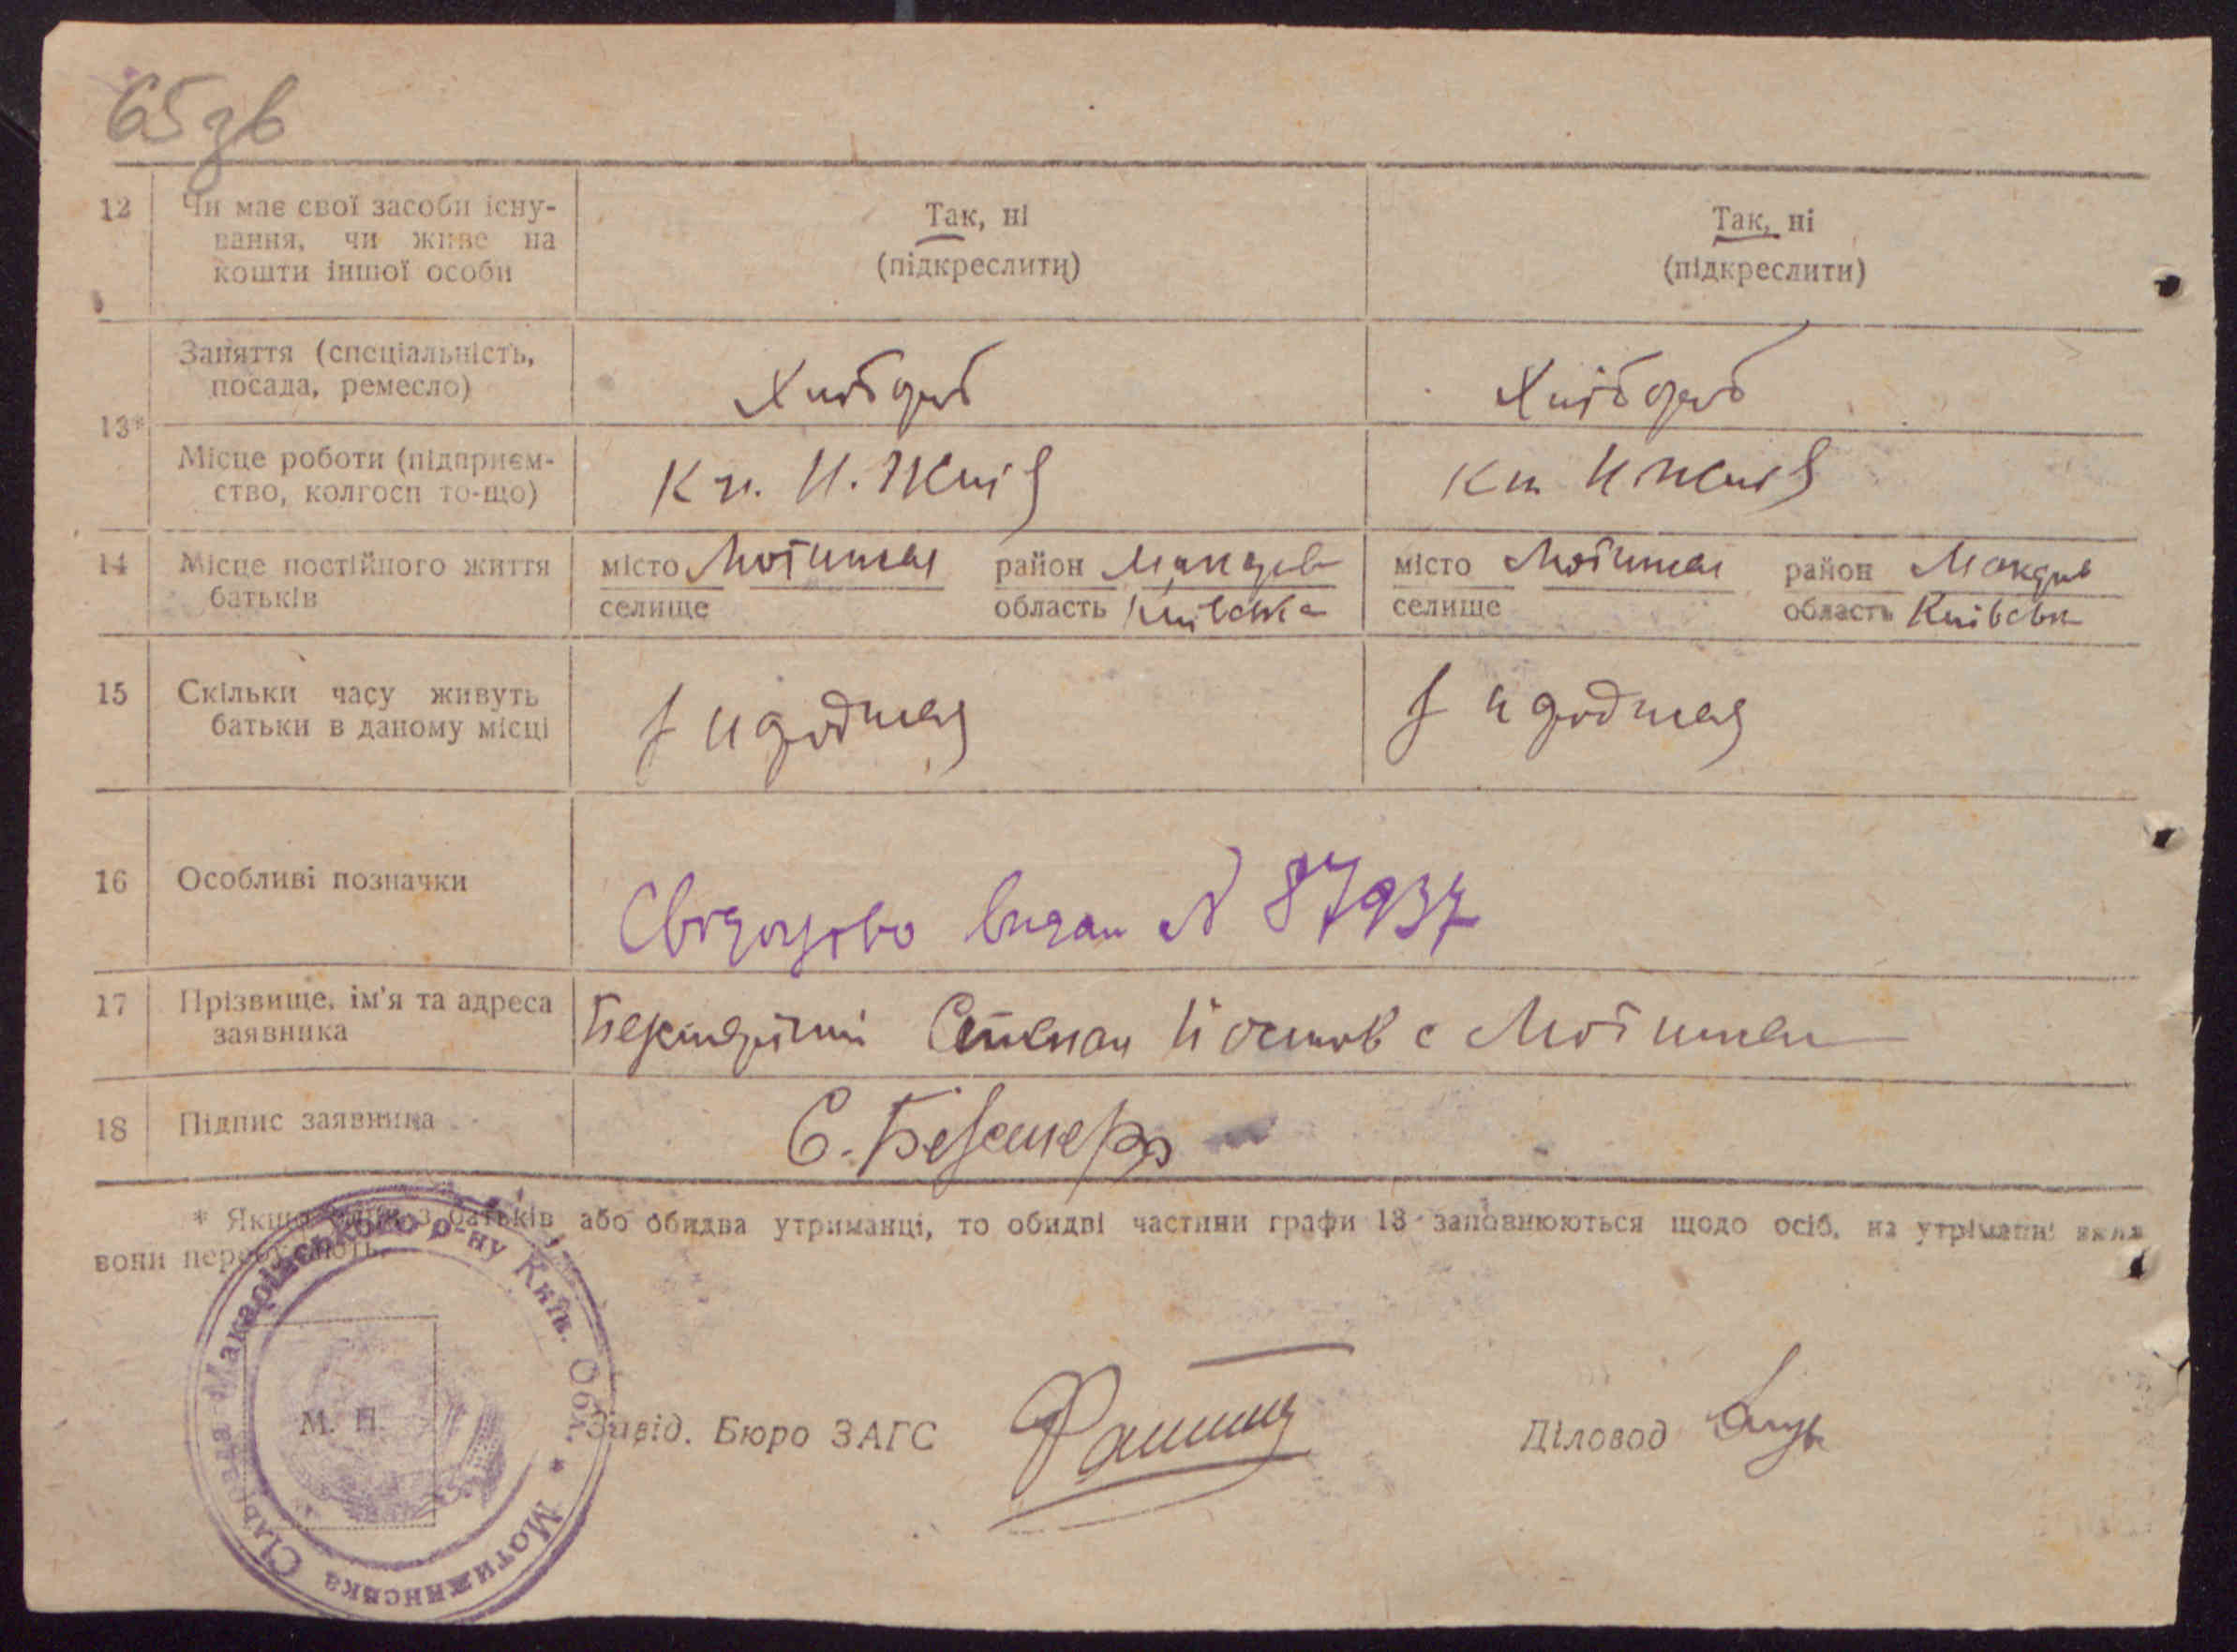 65зв
12 Чи має свої засоби існу-
вання, чи живе на
кошти іншої особи
Так, ні
(підкреслити)
Так, ні
(підкреслити)
13*
Заняття (спеціальність,
посада, ремесло)
Хлібороб
Хлібороб
Місце роботи (підприєм-
ство, колгосп то-що)
14 Місце постійного життя
батьків
місто Мотижин район Макарів
селище область Київська
місто Мотижин район Макарів
селище область Київськ
15 Скільки часу живуть
батьки в даному місці
16 Особливі позначки
Свідоцтво видан № 87937
17 Прізвище, ім'я та адреса
заявника
Степан с Мотижин
18 Підпис заявника
* Якщо один з батьків або обидва утриманці, то обидві частини графи 13 заповнюються щодо осіб, на утриманні яких
вони перебувають.
М. П.
Завід. Бюро ЗАГС
Діловод
Мотижинська Сільрада Макарівського р-ну Київ. Обл. *